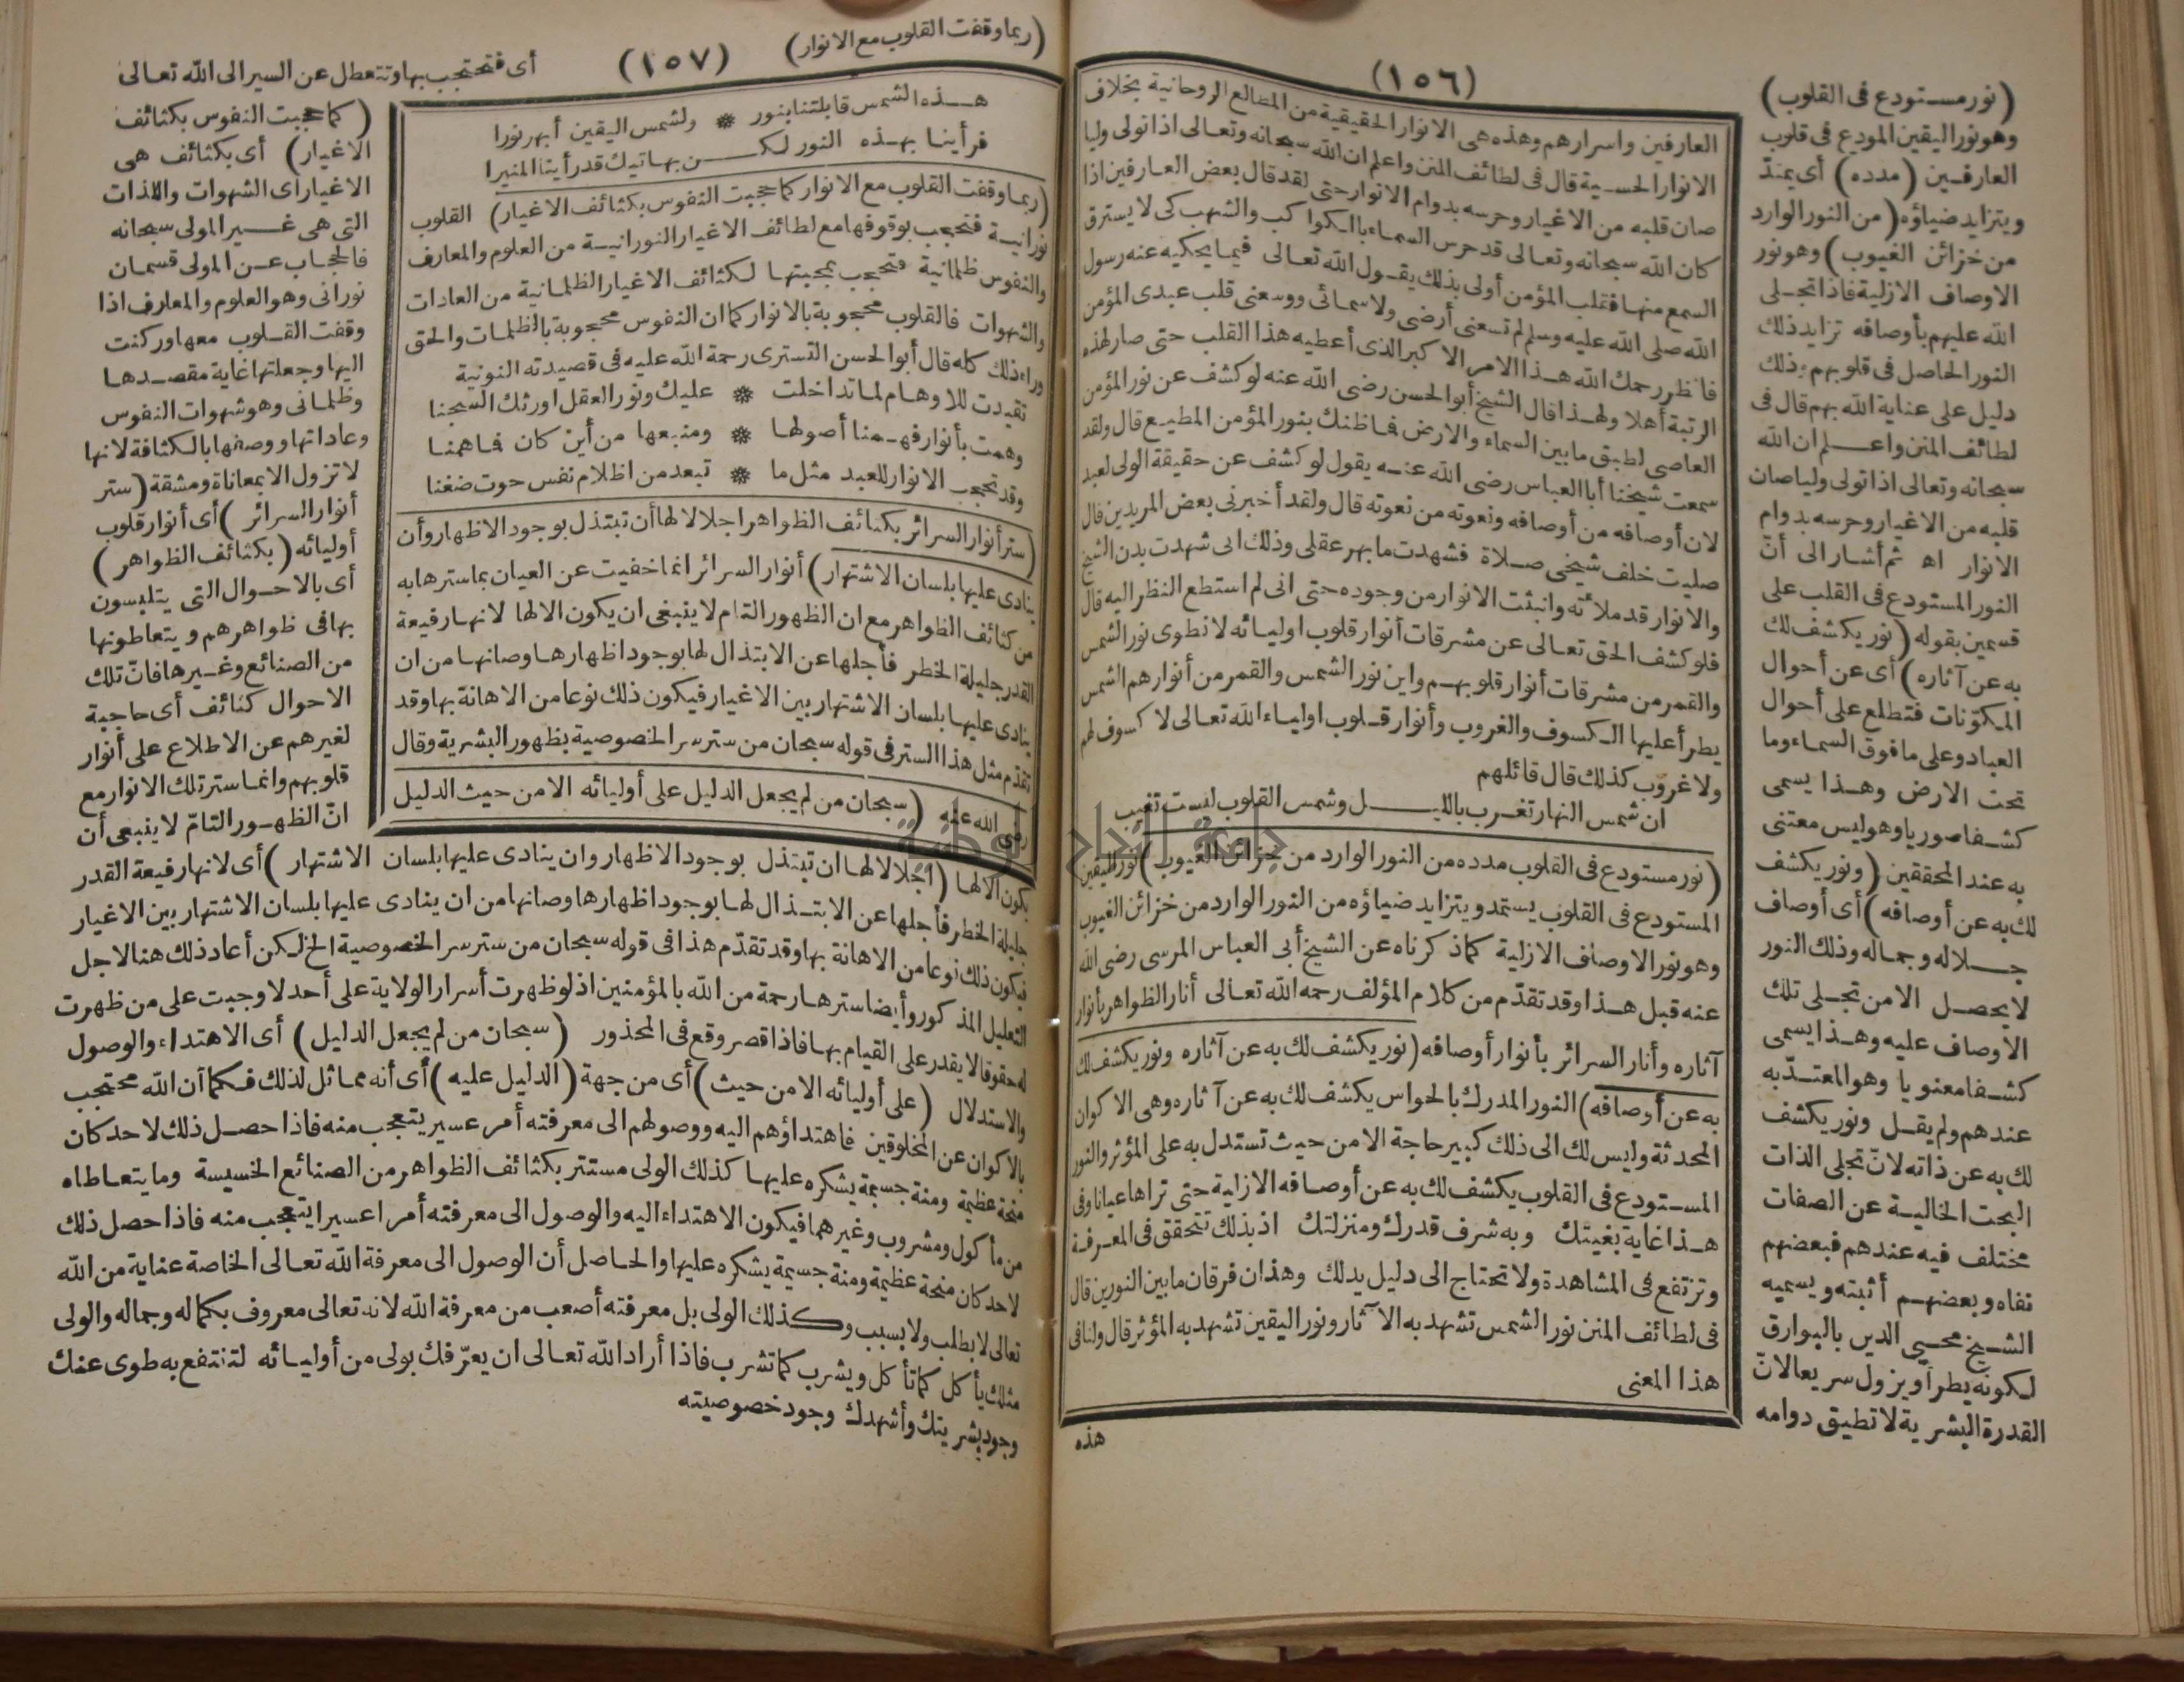 (١٥٦)
العارفين واسرارهم وهذه هى الانوار الحقيقية من المطالع الروحانية بخلاف
الانوار الحسية قال فى لطائف المنن واعلم ان الله سبحانه وتعالى اذا تولى وليا
صان قلبه من الاغيار وحرسه بدوام الانوار حتى لقد قال بعض العارفين اذا
كان الله سبحانه وتعالى قد حرس السماء بالكواكب والشهب كى لا يسترق
السمع منها فقلب المؤمن أولى بذلك يقول الله تعالى فيما يحكيه عنه رسول
الله صلى الله عليه وسلم لم تسعنى أرضى ولا سمائى ووسعنى قلب عبدى المؤمن
فانظر رحمك الله هذا الامر الاكبر الذى أعطيه هذا القلب حتى صار لهذه
الرتبة أهلا ولهذا قال الشيخ أبو الحسن رضى الله عنه لو كشف عن نور المؤمن
العاصى لطبق ما بين السماء والارض فما ظنك بنور المؤمن المطيع قال ولقد
سمعت شيخنا أبا العباس رضى الله عنه يقول لو كشف عن حقيقة الولى لعبد
لان أوصافه من أوصافه ونعوته من نعوته قال ولقد أخبرنى بعض المريدين قال
صليت خلف شيخى صلاة فشهدت ما بهر عقلى وذلك انى شهدت بدن الشيخ
والانوار قد ملأته وانبثت الانوار من وجوده حتى انى لم استطع النظر اليه قال
فلو كشف الحق تعالى عن مشرقات أنوار قلوب اوليائه لانطوى نور الشمس
والقمر من مشرقات أنوار قلوبهم واين نور الشمس والقمر من أنوارهم الشمس
يطرأ عليها الكسوف والغروب وأنوار قلوب اولياء الله تعالى لا كسوف لهم
ولا غروب كذلك قال قائلهم
ان شمس النهار تغرب بالليـل وشمس القلوب ليست تغيب
(نور مستودع فى القلوب مدده من النور الوارد من خزائن الغيوب) نور اليقين
المستودع فى القلوب يستمد ويتزايد ضياؤه من النور الوارد من خزائن الغيوب
وهو نور الاوصاف الازلية كما ذكرناه عن الشيخ أبى العباس المرسى رضى الله
عنه قبل هذا وقد تقدم من كلام المؤلف رحمه الله تعالى أنار الظواهر بأنوار
آثاره وأنار السرائر بأنوار أوصافه (نور يكشف لك به عن آثاره ونور يكشف لك
به عن أوصافه) النور المدرك بالحواس يكشف لك به عن آثاره وهى الاكوان
المحدثة وليس لك الى ذلك كبير حاجة الا من حيث تستدل به على المؤثر والنور
المستودع فى القلوب يكشف لك به عن أوصافه الازلية حتى تراها عيانا وفى
هذا غاية بغيتك وبه شرف قدرك ومنزلتك اذ بذلك تتحقق فى المعرفة
وترتفع فى المشاهدة ولا تحتاج الى دليل يدلك وهذان فرقان ما بين النورين قال
فى لطائف المنن نور الشمس تشهد به الآثار ونور اليقين تشهد به المؤثر قال ولنا فى
هذا المعنى
هذه
(نور مستودع فى القلوب)
وهو نور اليقين المودع فى قلوب
العارفين (مدده) أى يمتد
ويتزايد ضياؤه (من النور الوارد
من خزائن الغيوب) وهو نور
الاوصاف الازلية فاذا تجلى
الله عليهم بأوصافه تزايد ذلك
النور الحاصل فى قلوبهم وذلك
دليل على عناية الله بهم قال فى
لطائف المنن واعلم ان الله
سبحانه وتعالى اذا تولى وليا صان
قلبه من الاغيار وحرسه بدوام
الانوار اه ثم أشار الى أنّ
النور المستودع فى القلب على
قسمين بقوله (نور يكشف لك
به عن آثاره) أى عن أحوال
المكوّنات فتطلع على أحوال
العباد وعلى ما فوق السماء وما
تحت الارض وهذا يسمى
كشفا صوريا وهو ليس معتنى
به عند المحققين (ونور يكشف
لك به عن أوصافه) أى أوصاف
جلاله وجماله وذلك النور
لا يحصل الا من تجلى تلك
الاوصاف عليه وهذا يسمى
كشفا معنويا وهو المعتدّ به
عندهم ولم يقل ونور يكشف
لك به عن ذاته لانّ تجلى الذات
البحت الخالية عن الصفات
مختلف فيه عندهم فبعضهم
نفاه وبعضهم أثبته ويسميه
الشيخ محيى الدين بالبوارق
لكونه يطرأ ويزول سريعا لانّ
القدرة البشرية لا تطيق دوامه
(ربما وقفت القلوب مع الانوار)
(١٥٧)
أى فتحتجب بها وتتعطل عن السير الى الله تعالى
هـذه الشمس قابلتنا بنور * ولشمس اليقين أبهر نورا
فرأينا بهذه النور لكـن بهاتيك قد رأينا المنيرا
(ربما وقفت القلوب مع الانوار كما حجبت النفوس بكثائف الاغيار) القلوب
نورانية فتحجب بوقوفها مع لطائف الاغيار النورانية من العلوم والمعارف
والنفوس ظلمانية فتحجب بمحبتها لكثائف الاغيار الظلمانية من العادات
والشهوات فالقلوب محجوبة بالانوار كما ان النفوس محجوبة بالظلمات والحق
وراء ذلك كله قال أبو الحسن التسترى رحمة الله عليه فى قصيدته النونية
تقيدت للاوهام لما تداخلت * عليك ونور العقل اورثك السجنا
وهمت بأنوار فهمنا أصولها * ومنبعها من أين كان فما همنا
وقد تحجب الانوار للعبد مثل ما * تبعد من اظلام نفس حوت ضغنا
(ستر أنوار السرائر بكثائف الظواهر اجلالا لها أن تبتذل بوجود الاظهار وأن
ينادى عليها بلسان الاشتهار) أنوار السرائر انما خفيت عن العيان بما سترها به
من كثائف الظواهر مع ان الظهور التام لا ينبغى ان يكون الا لها لانها رفيعة
القدر جليلة الخطر فأجلها عن الابتذال لها بوجود اظهارها وصانها من ان
ينادى عليها بلسان الاشتهار بين الاغيار فيكون ذلك نوعا من الاهانة بها وقد
تقدّم مثل هذا الستر فى قوله سبحان من ستر سر الخصوصية بظهور البشرية وقال
رضى الله عنه (سبحان من لم يجعل الدليل على أوليائه الا من حيث الدليل
(كما حجبت النفوس بكثائف
الاغيار) أى بكثائف هى
الاغيار أى الشهوات واللذات
التى هى غير المولى سبحانه
فالحجاب عن المولى قسمان
نورانى وهو العلوم والمعارف اذا
وقفت القلوب معها وركنت
اليها وجعلتها غاية مقصدها
وظلمانى وهو شهوات النفوس
وعاداتها ووصفها بالكثافة لانها
لا تزول الا بمعاناة ومشقة (ستر
أنوار السرائر) أى أنوار قلوب
أوليائه (بكثائف الظواهر)
أى بالاحوال التى يتلبسون
بها فى ظواهرهم ويتعاطونها
من الصنائع وغيرها فانّ تلك
الاحوال كثائف أى حاجبة
لغيرهم عن الاطلاع على أنوار
قلوبهم وانما ستر تلك الانوار مع
انّ الظهور التامّ لا ينبغى أن
يكون الا لها (اجلالا لها ان تبتذل بوجود الاظهار وان ينادى عليها بلسان الاشتهار) أى لانها رفيعة القدر
جليلة الخطر فأجلها عن الابتذال لها بوجود اظهارها وصانها من ان ينادى عليها بلسان الاشتهار بين الاغيار
فيكون ذلك نوعا من الاهانة بها وقد تقدّم هذا فى قوله سبحان من ستر سر الخصوصية الخ لكن أعاد ذلك هنا لاجل
التعليل المذكور وأيضا سترها رحمة من الله بالمؤمنين اذ لو ظهرت أسرار الولاية على أحد لاوجبت على من ظهرت
له حقوقا لا يقدر على القيام بها فاذا قصر وقع فى المحذور (سبحان من لم يجعل الدليل) أى الاهتداء والوصول
والاستدلال (على أوليائه الا من حيث) أى من جهة (الدليل عليه) أى أنه مماثل لذلك فكما أن الله محتجب
بالاكوان عن المخلوقين فاهتداؤهم اليه ووصولهم الى معرفته أمر عسير يتعجب منه فاذا حصل ذلك لاحد كان
منحة عظيمة ومنة جسيمة يشكره عليها كذلك الولى مستتر بكثائف الظواهر من الصنائع الخسيسة وما يتعاطاه
من مأكول ومشروب وغيرهما فيكون الاهتداء اليه والوصول الى معرفته أمرا عسيرا يتعجب منه فاذا حصل ذلك
لاحد كان منحة عظيمة ومنة جسيمة يشكره عليها والحاصل أن الوصول الى معرفة الله تعالى الخاصة عناية من الله
تعالى لا بطلب ولا بسبب وكذلك الولى بل معرفته أصعب من معرفة الله لانه تعالى معروف بكماله وجماله والولى
مثلك يأكل كما تأكل ويشرب كما تشرب فاذا أراد الله تعالى ان يعرّفك بولى من أوليائه لتنتفع به طوى عنك
وجود بشريتك وأشهدك وجود خصوصيته